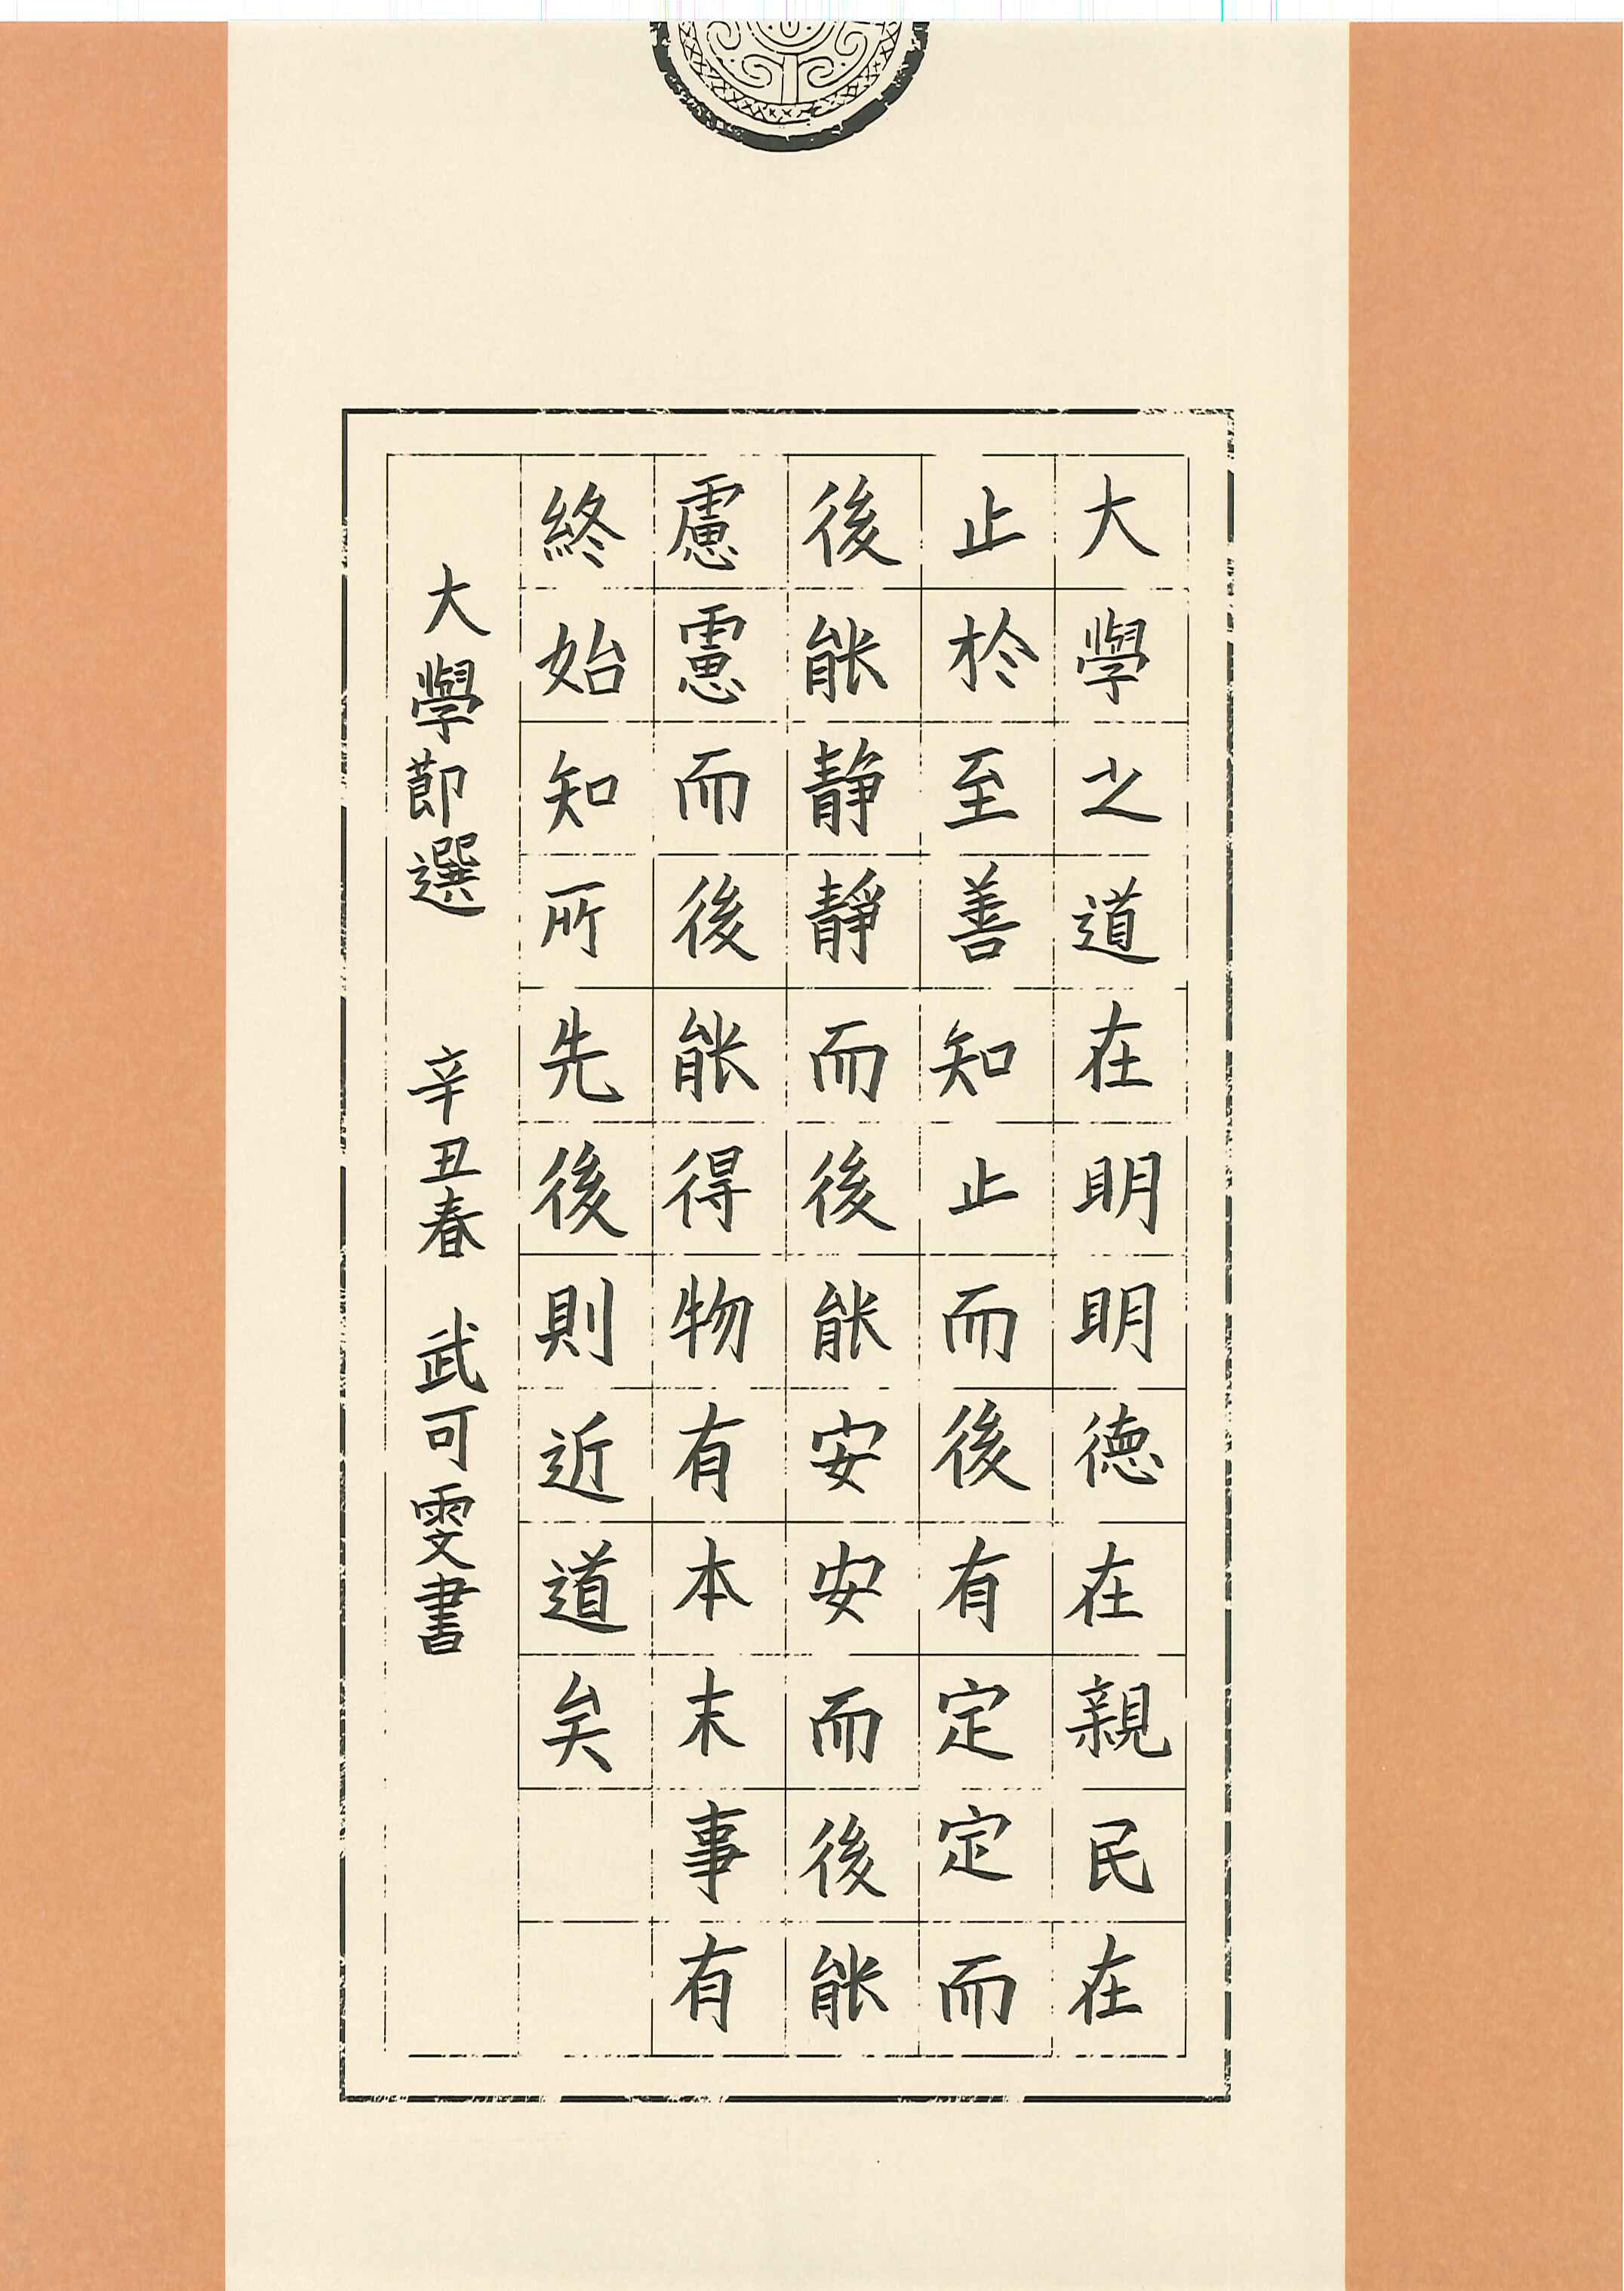 大學之道在明明德在親民在
止於至善知止而後有定定而
後能静靜而後能安安而後能
慮慮而後能得物有本末事有
終始知所先後則近道矣
大學節選 辛丑春 武可雯書